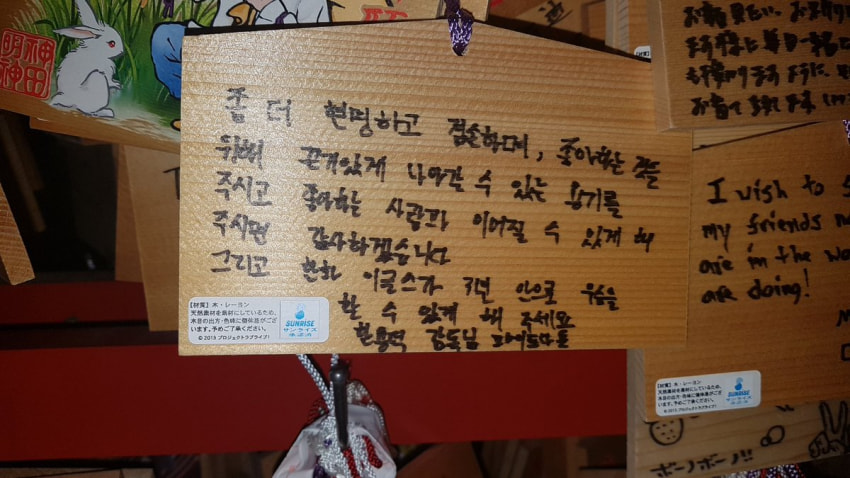 좀 더 현명하고 겸손하며, 좋아하는 것들
위해 끈기있게 나아갈 수 있는 용기를
주시고 좋아하는 사람과 이어질 수 있게 해
주시면 감사하겠습니다
그리고 한화 이글스가 3년 안으로 우승을
할 수 있게 해 주세요
한용덕 감독님 화이팅
【材質】木・レーヨン
天然素材を素材にしているため、
木目の出方・色味に個体差がござ
います。予めご了承ください。
© 2013 プロジェクトラブライブ!
SUNRISE
サンライズ
神田
明神
I wish to
my friends
are in the
are doing!
【材質】木・レーヨン
天然素材を素材にしているため、
木目の出方・色味に個体差がござ
います。予めご了承ください。
© 2013 プロジェクトラブライブ!
ボーノボーノ!!